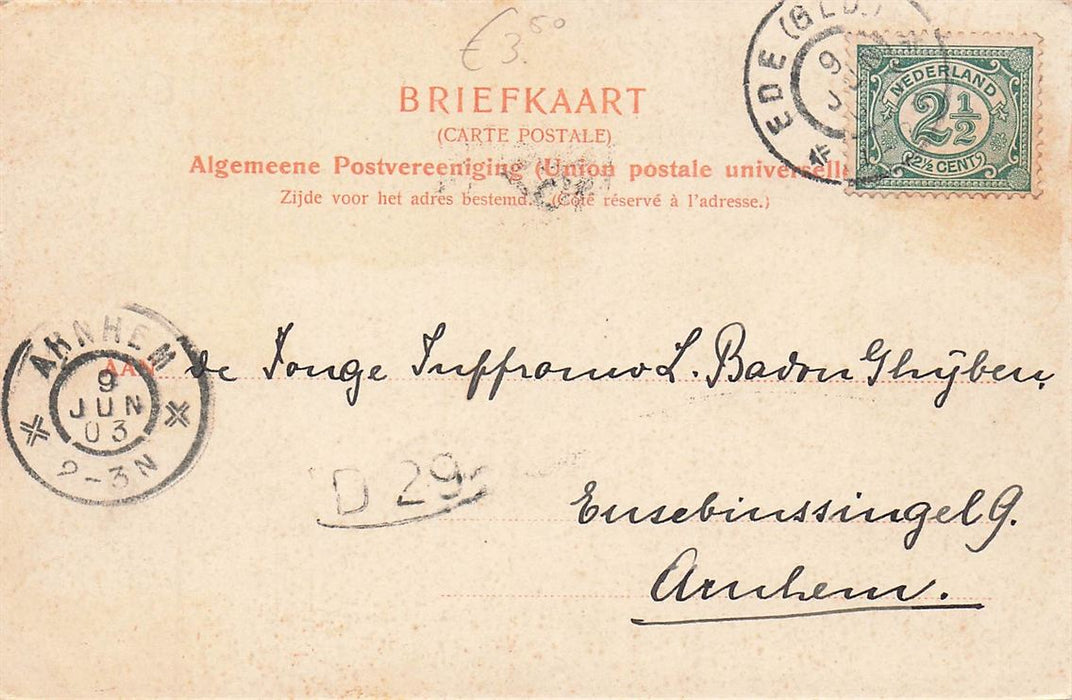 € 3.50
BRIEFKAART
(CARTE POSTALE)
Algemeene Postvereeniging (Union postale universelle
Zijde voor het adres bestemd. (Côté réservé à l'adresse.)
EDE (GLD.)
9 JUN
NEDERLAND
2½
(2½ CENT)
ARNHEM
9
JUN
03
2-3N
AAN de Jonge Juffrouw L. Badon Ghijben,
D 29
Eusebiussingel 9.
Arnhem.